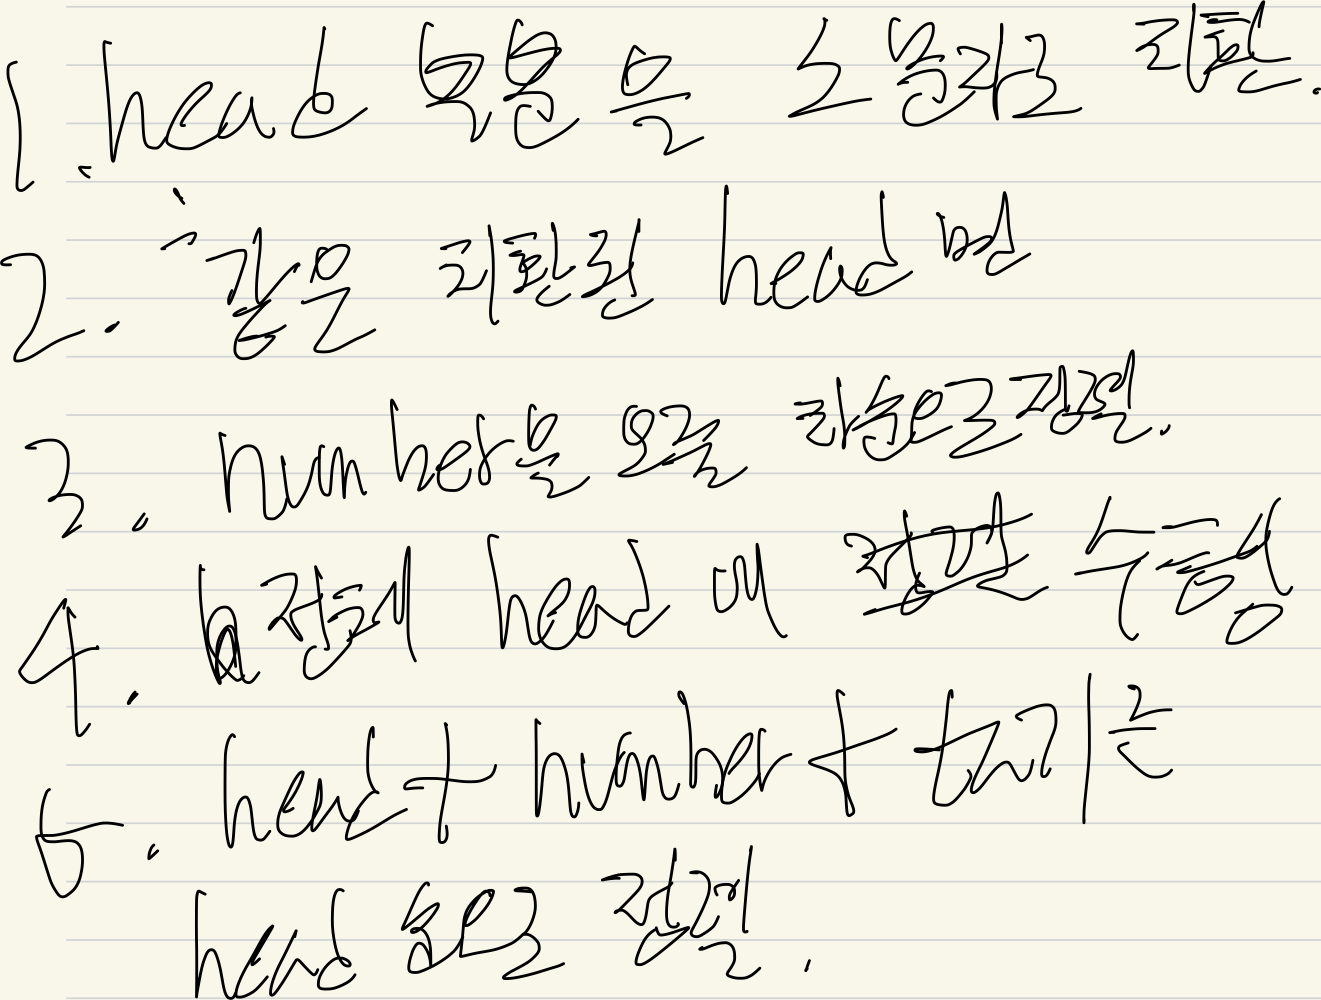 1. head 묶음을 소문자로 리턴.
2. 같은 리턴된 head 면
3. number을 오름 차순으로 정렬.
4. 전체 head 에 수행
5. head + number + tail 를
head 순으로 정렬.